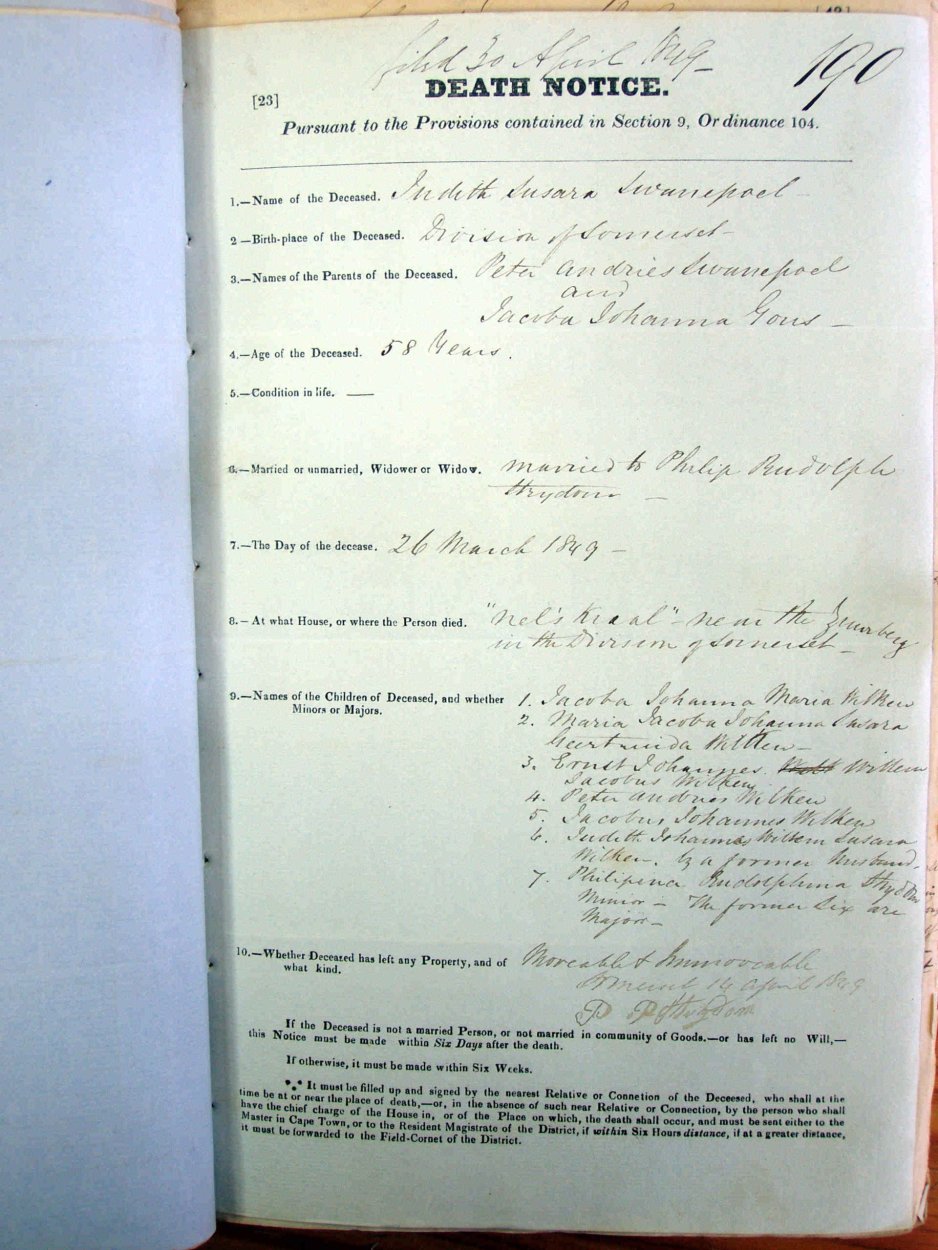 filed 30 April 1849
190
DEATH NOTICE.
[23]
Pursuant to the Provisions contained in Section 9, Ordinance 104.
1.—Name of the Deceased. Judith Susara Swanepoel
2—Birth-place of the Deceased. Division of Somerset—
3.—Names of the Parents of the Deceased. Peter Andries Swanepoel
and
Jacoba Johanna Gous —
4.—Age of the Deceased. 58 Years.
5.—Condition in life. —
6.—Married or unmarried, Widower or Widow. married to Philip Rudolph
Strydom —
7.—The Day of the decease. 26 March 1849 —
8.—At what House, or where the Person died. "Nel's Kraal" - near the Zuurberg
in the Division of Somerset —
9.—Names of the Children of Deceased, and whether
Minors or Majors.
1. Jacoba Johanna Maria Wilken
2. Maria Jacoba Johanna Susara
Geertruida Wilken —
3. Ernst Johannes Willem
Jacobus Wilken
4. Peter Andries Wilken
5. Jacobus Johannes Wilken
6. Judith Johannes Willem Susara
Wilken. by a former husband.
7. Philipina Rudolphina Strydom
Minor — The former Six are
Majors —
10.—Whether Deceased has left any Property, and of
what kind.
Moveable & Immoveable
Somerset 14 April 1849
P Strydom
If the Deceased is not a married Person, or not married in community of Goods.—or has left no Will,—
this Notice must be made within Six Days after the death.
If otherwise, it must be made within Six Weeks.
*** It must be filled up and signed by the nearest Relative or Connetion of the Deceesed, who shall at the
time be at or near the place of death,—or, in the absence of such near Relative or Connection, by the person who shall
have the chief charge of the House in, or of the Place on which, the death shall occur, and must be sent either to the
Master in Cape Town, or to the Resident Magistrate of the District, if within Six Hours distance, if at a greater distance,
it must be forwarded to the Field-Cornet of the District.